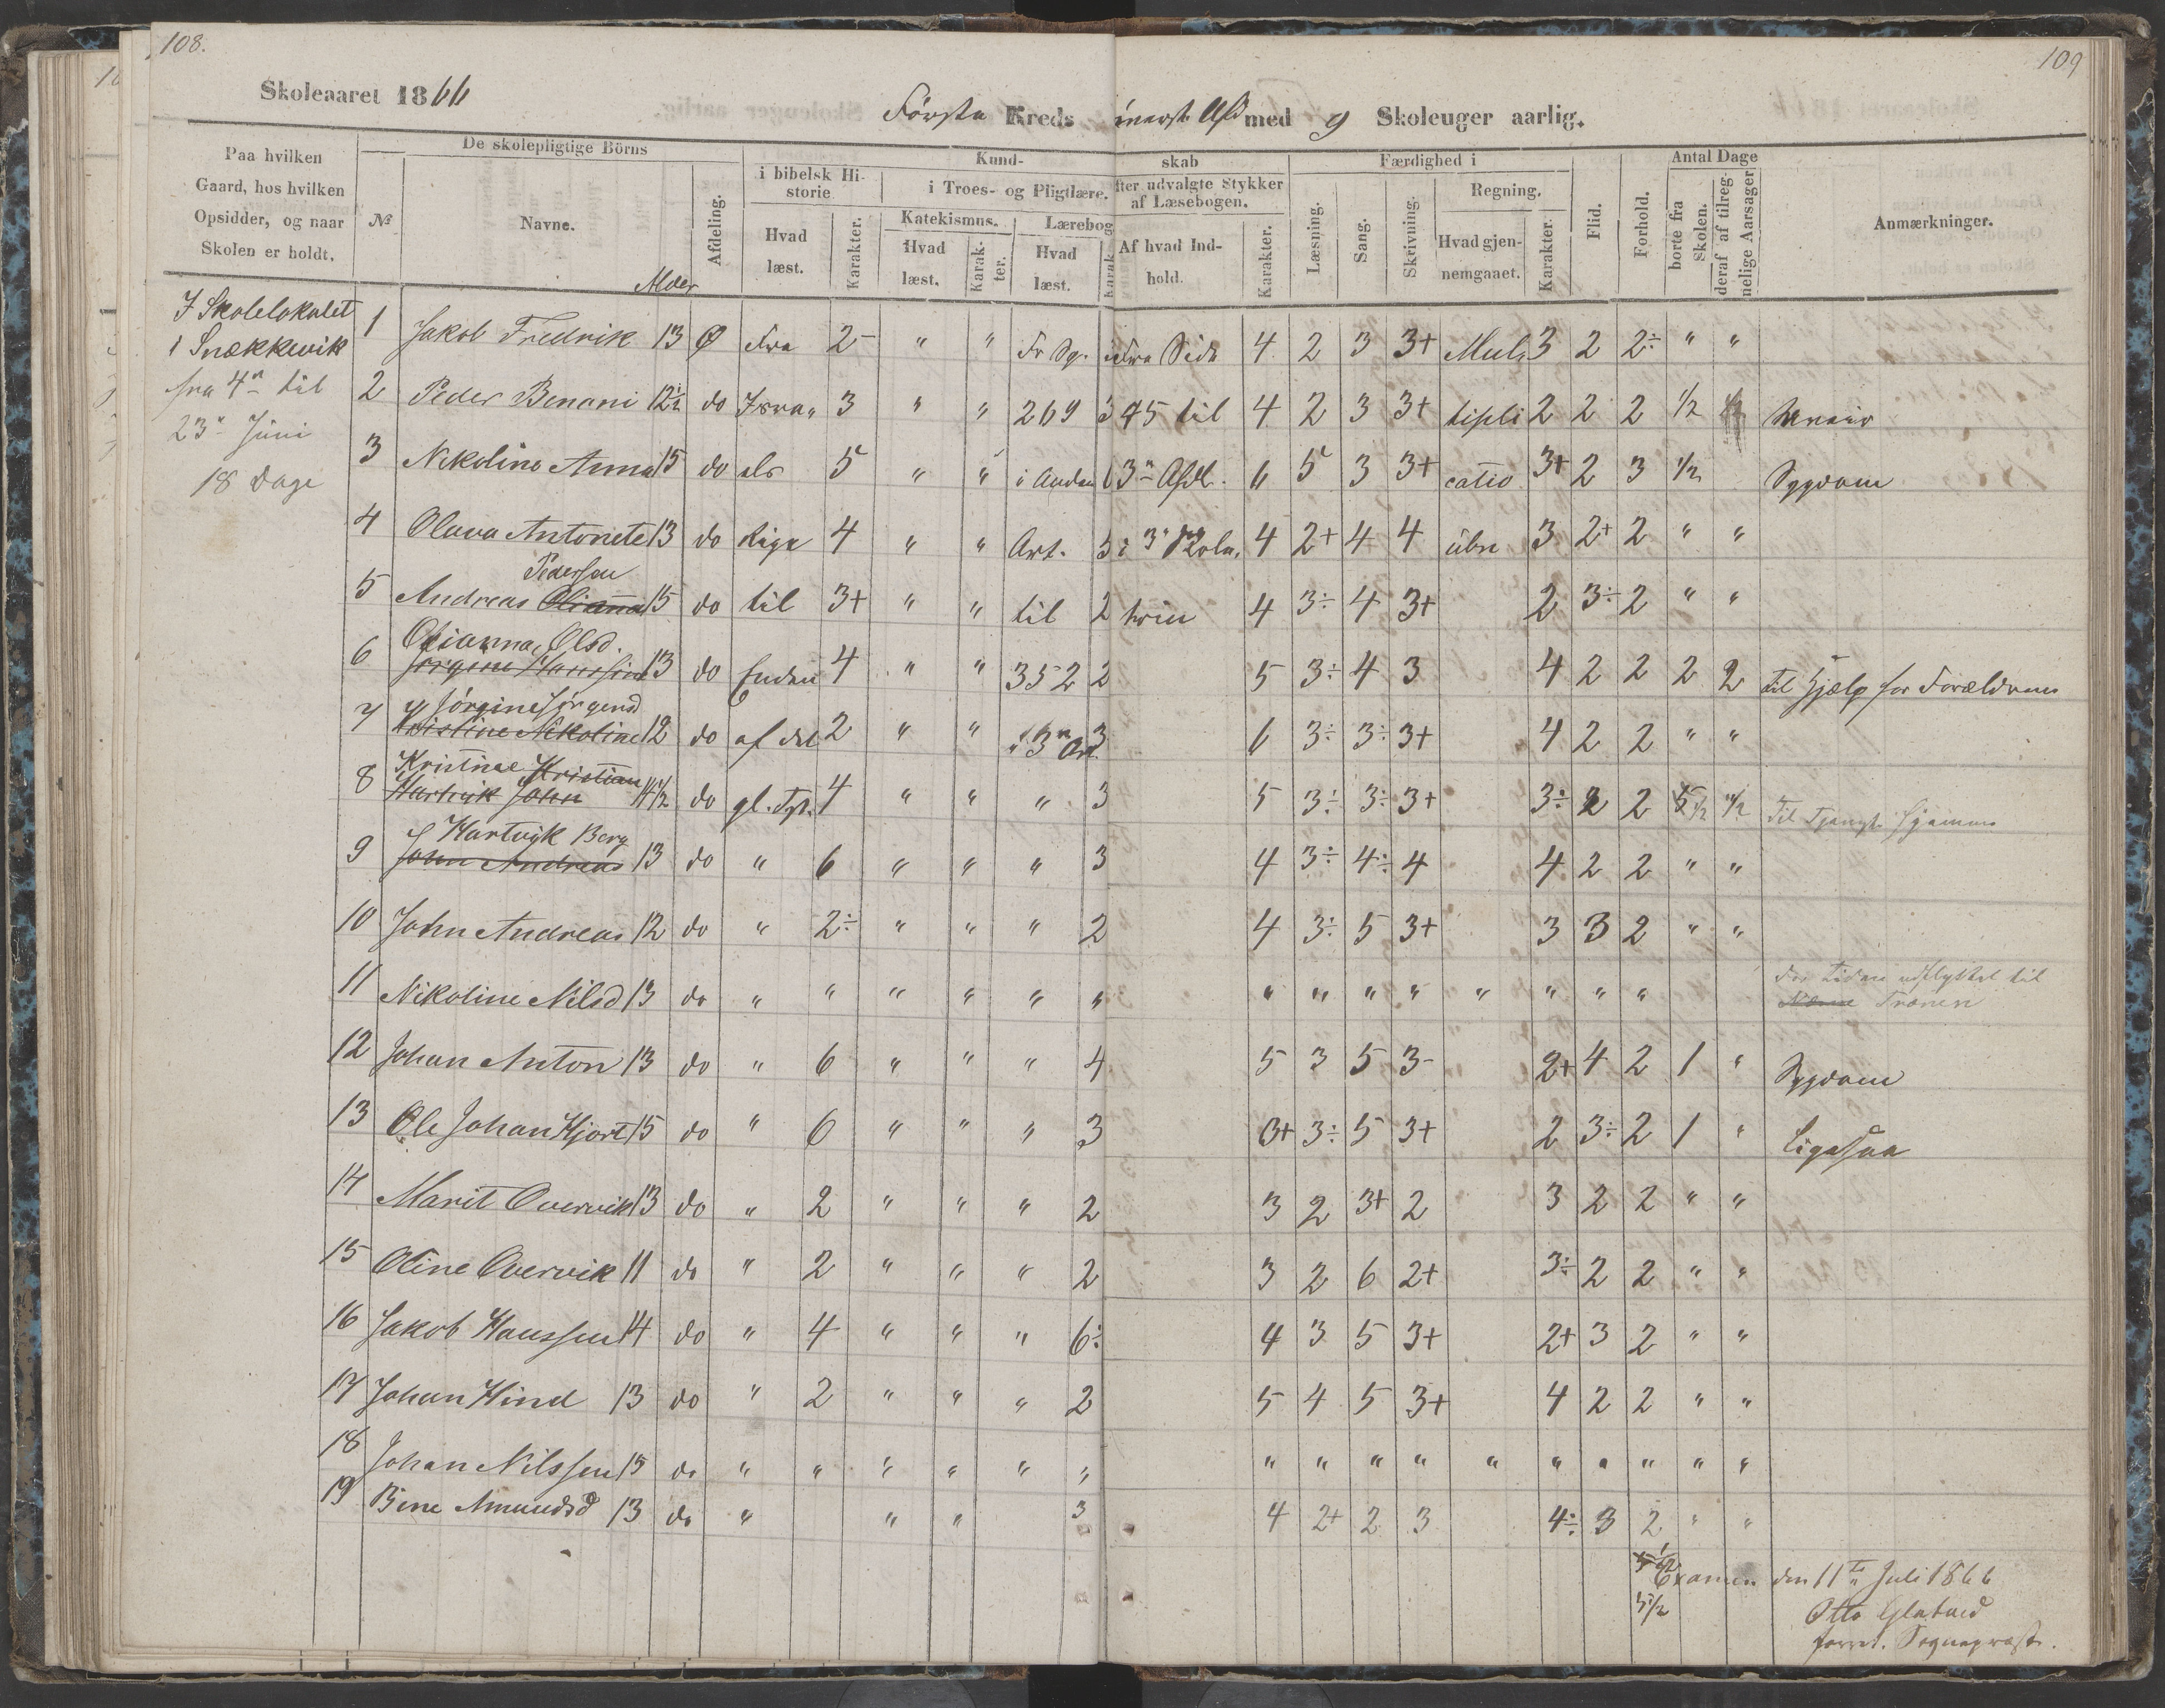 108.
109
Skoleaaret 1866
Første Kreds med 9 Skoleuger aarlig.
Paa hvilken Gaard, hos hvilken Opsidder, og naar Skolen er holdt.
De skolepligtige Börns
№
Navne.
Alder
Afdeling.
Kund-
skab
i bibelsk Hi-
storie
Hvad læst.
Karakter.
i Troes- og Pligtlære.
Katekismus.
Hvad læst.
Karak-
ter.
Lærebog
Hvad læst.
Karak
fter udvalgte Stykker af Læsebogen.
Af hvad Ind-
hold.
Karakter.
Færdighed i
Læsning.
Sang.
Skrivning.
Regning.
Hvad gjen-
nemgaaet.
Karakter.
Flid.
Forhold.
Antal Dage
borte fra Skolen.
deraf af tilreg-
nelige Aarsager
Anmærkninger.
I Skolelokalet
i Snækkevik
fra 4de til
23de Juni
18 Dage
1 Jakob Fredrik 13 Ø Fra 2- " " Fr Sp. Fra Side 4 2 3 3+ Mul 3 2 2÷ " "
2 Peder Benoni 12½ do Isra 3 " " 269 3 45 til 4 2 3 3+ tipli 2 2 2 1/2
3 Nikoline Anna 15 do els 5 " " i Anden 6 3die Afdl. 6 5 3 3+ catio 3+ 2 3 1/2 Sygdom
4 Olava Antonete 13 do Rige 4 " " Art. 3 4 2+ 4 4 3 2+ 2 " "
Pedersen
5 Andreas Olianna 15 do til 3+ " " til 2 trin 4 3÷ 4 3+ 2 3÷ 2 " "
Olianna Olsd.
6 Jørgine 13 do Enden 4 " " 352 2 5 3÷ 4 3 4 2 2 2 2 til Hjælp for Forældrene
Jørgine Jørgensd
7 Kristine Nikoline 12 do af det 2 " " 3die Art. 3 6 3÷ 3÷ 3+ 4 2 2 " "
Kristine Kristian
8 Hartvik John 14½ do gl. Tst. 4 " " " 3 5 3÷ 3÷ 3+ 3÷ 2 2 Til Hjemme
Hartvik Berg
9 John Andreas 13 do " 6 " " " 3 4 3÷ 4÷ 4 4 2 2 " "
10 John Andreas 12 do " 2÷ " " " 2 4 3÷ 5 3+ 3 3 2 " "
11 Nikoline Nilsd 13 do " " " " " " " " " " " " " " udflyttet til
Trænen
12 Johan Anton 13 do " 6 " " " 4 5 3 5 3- 2+ 4 2 1 " Sygdom
13 Ole Johan Hjort 15 do " 6 " " " 3 3+ 3÷ 5 3+ 2 3÷ 2 1 " Ligesaa
14 Marit Overvik 13 do " 2 " " " 2 3 2 3+ 2 3 2 2 " "
15 Oline Overvik 11 do " 2 " " " 2 3 2 6 2+ 3÷ 2 2 " "
16 Jakob Hanssen 14 do " 4 " " " 6÷ 4 3 5 3+ 2+ 3 2 " "
17 Johan Hind 13 do " 2 " " " 2 5 4 5 3+ 4 2 2 " "
18 Johan Nilssen 15 do " " " " " " " " " " " " " " " "
19 Bine Amundsd 13 do " " " 3 4 2+ 2 3 4÷ 3 2 " "
5½
Examen den 11te Juli 1866
Otto
Sogneprest.